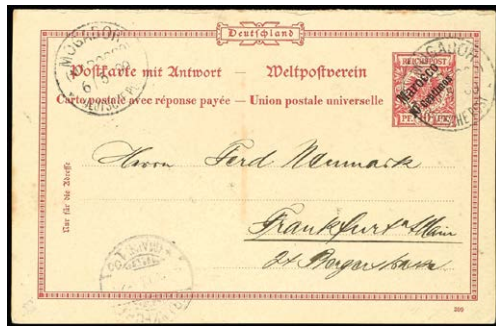 Deutschland
MOGADOR
MAROCCO
DEUTSCHE P
Postkarte mit Antwort — Weltpostverein
Carte postale avec réponse payée — Union postale universelle
REICHSPOST
Marocco
10 Centimos
PF. 10 PF.
Nur für die Adresse
Herrn Ferd Neumark
Frankfurt a/Main
24 Bergerstrasse